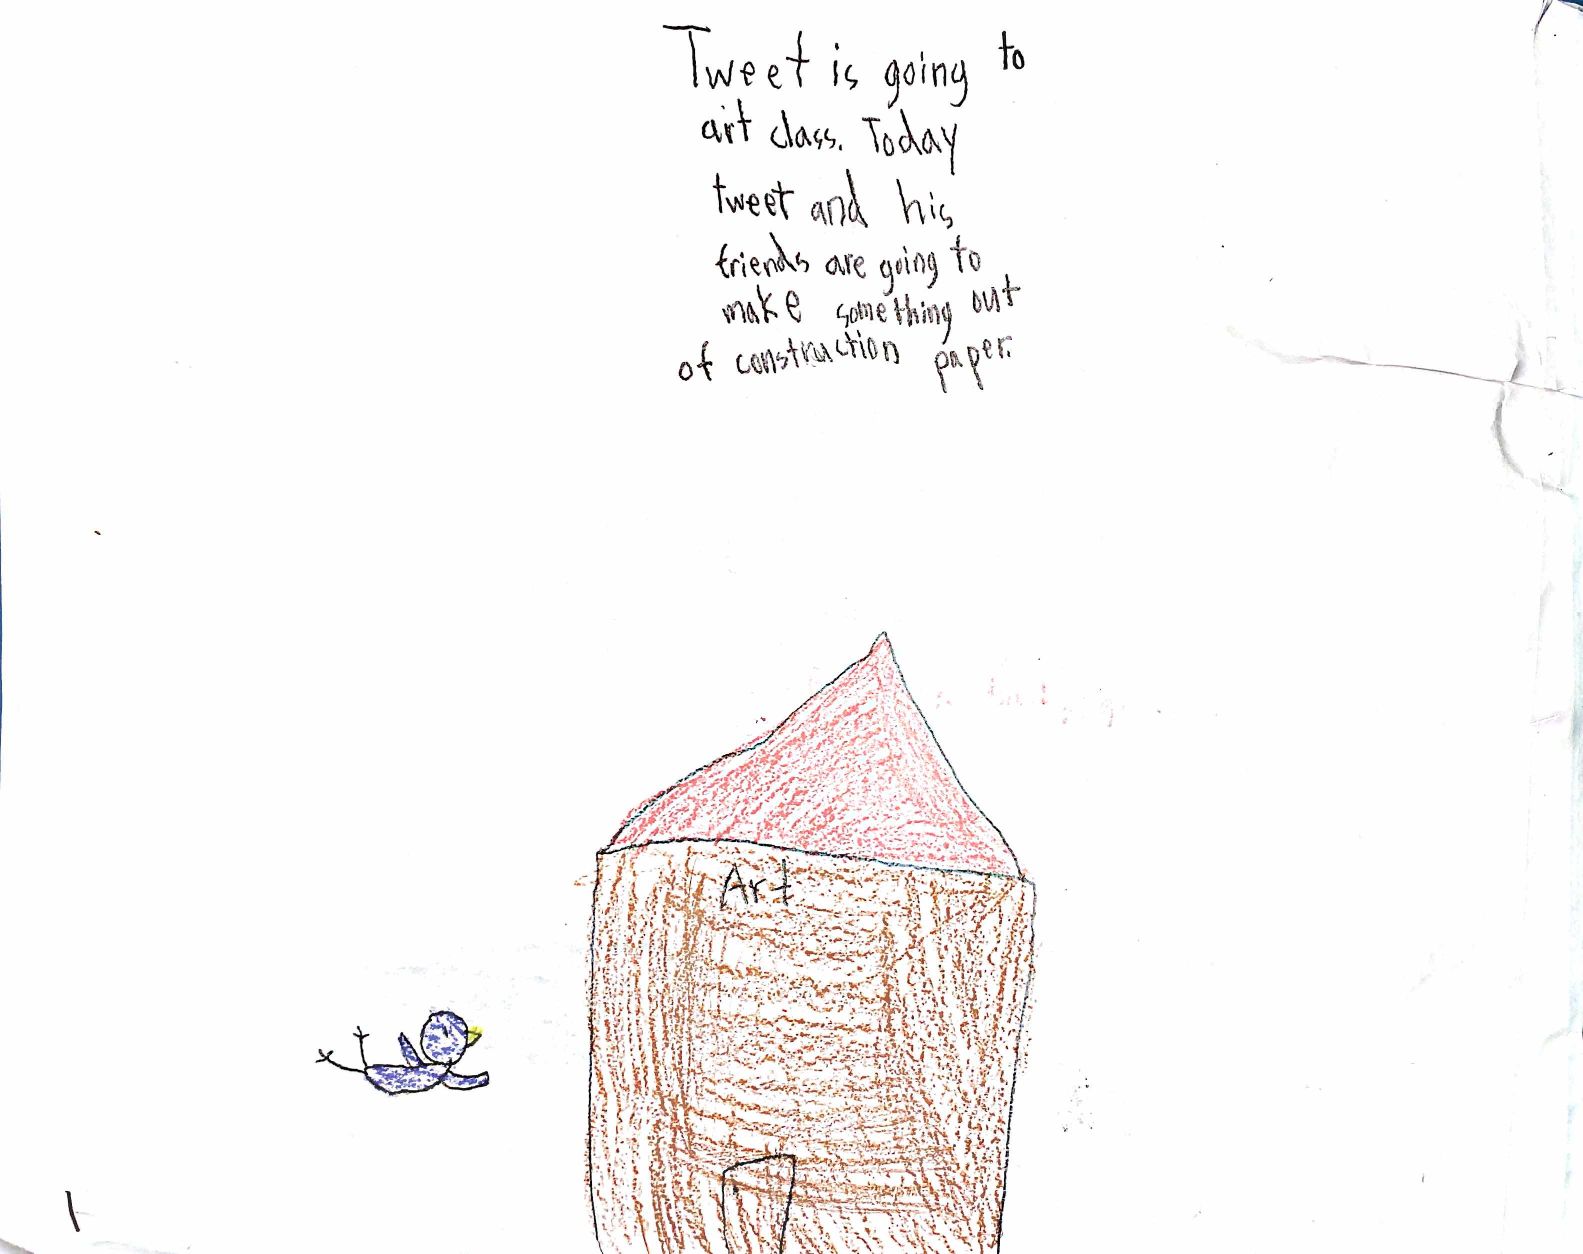 Tweet is going to
art class. Today
tweet and his
friends are going to
make something out
of construction paper.
Art
1